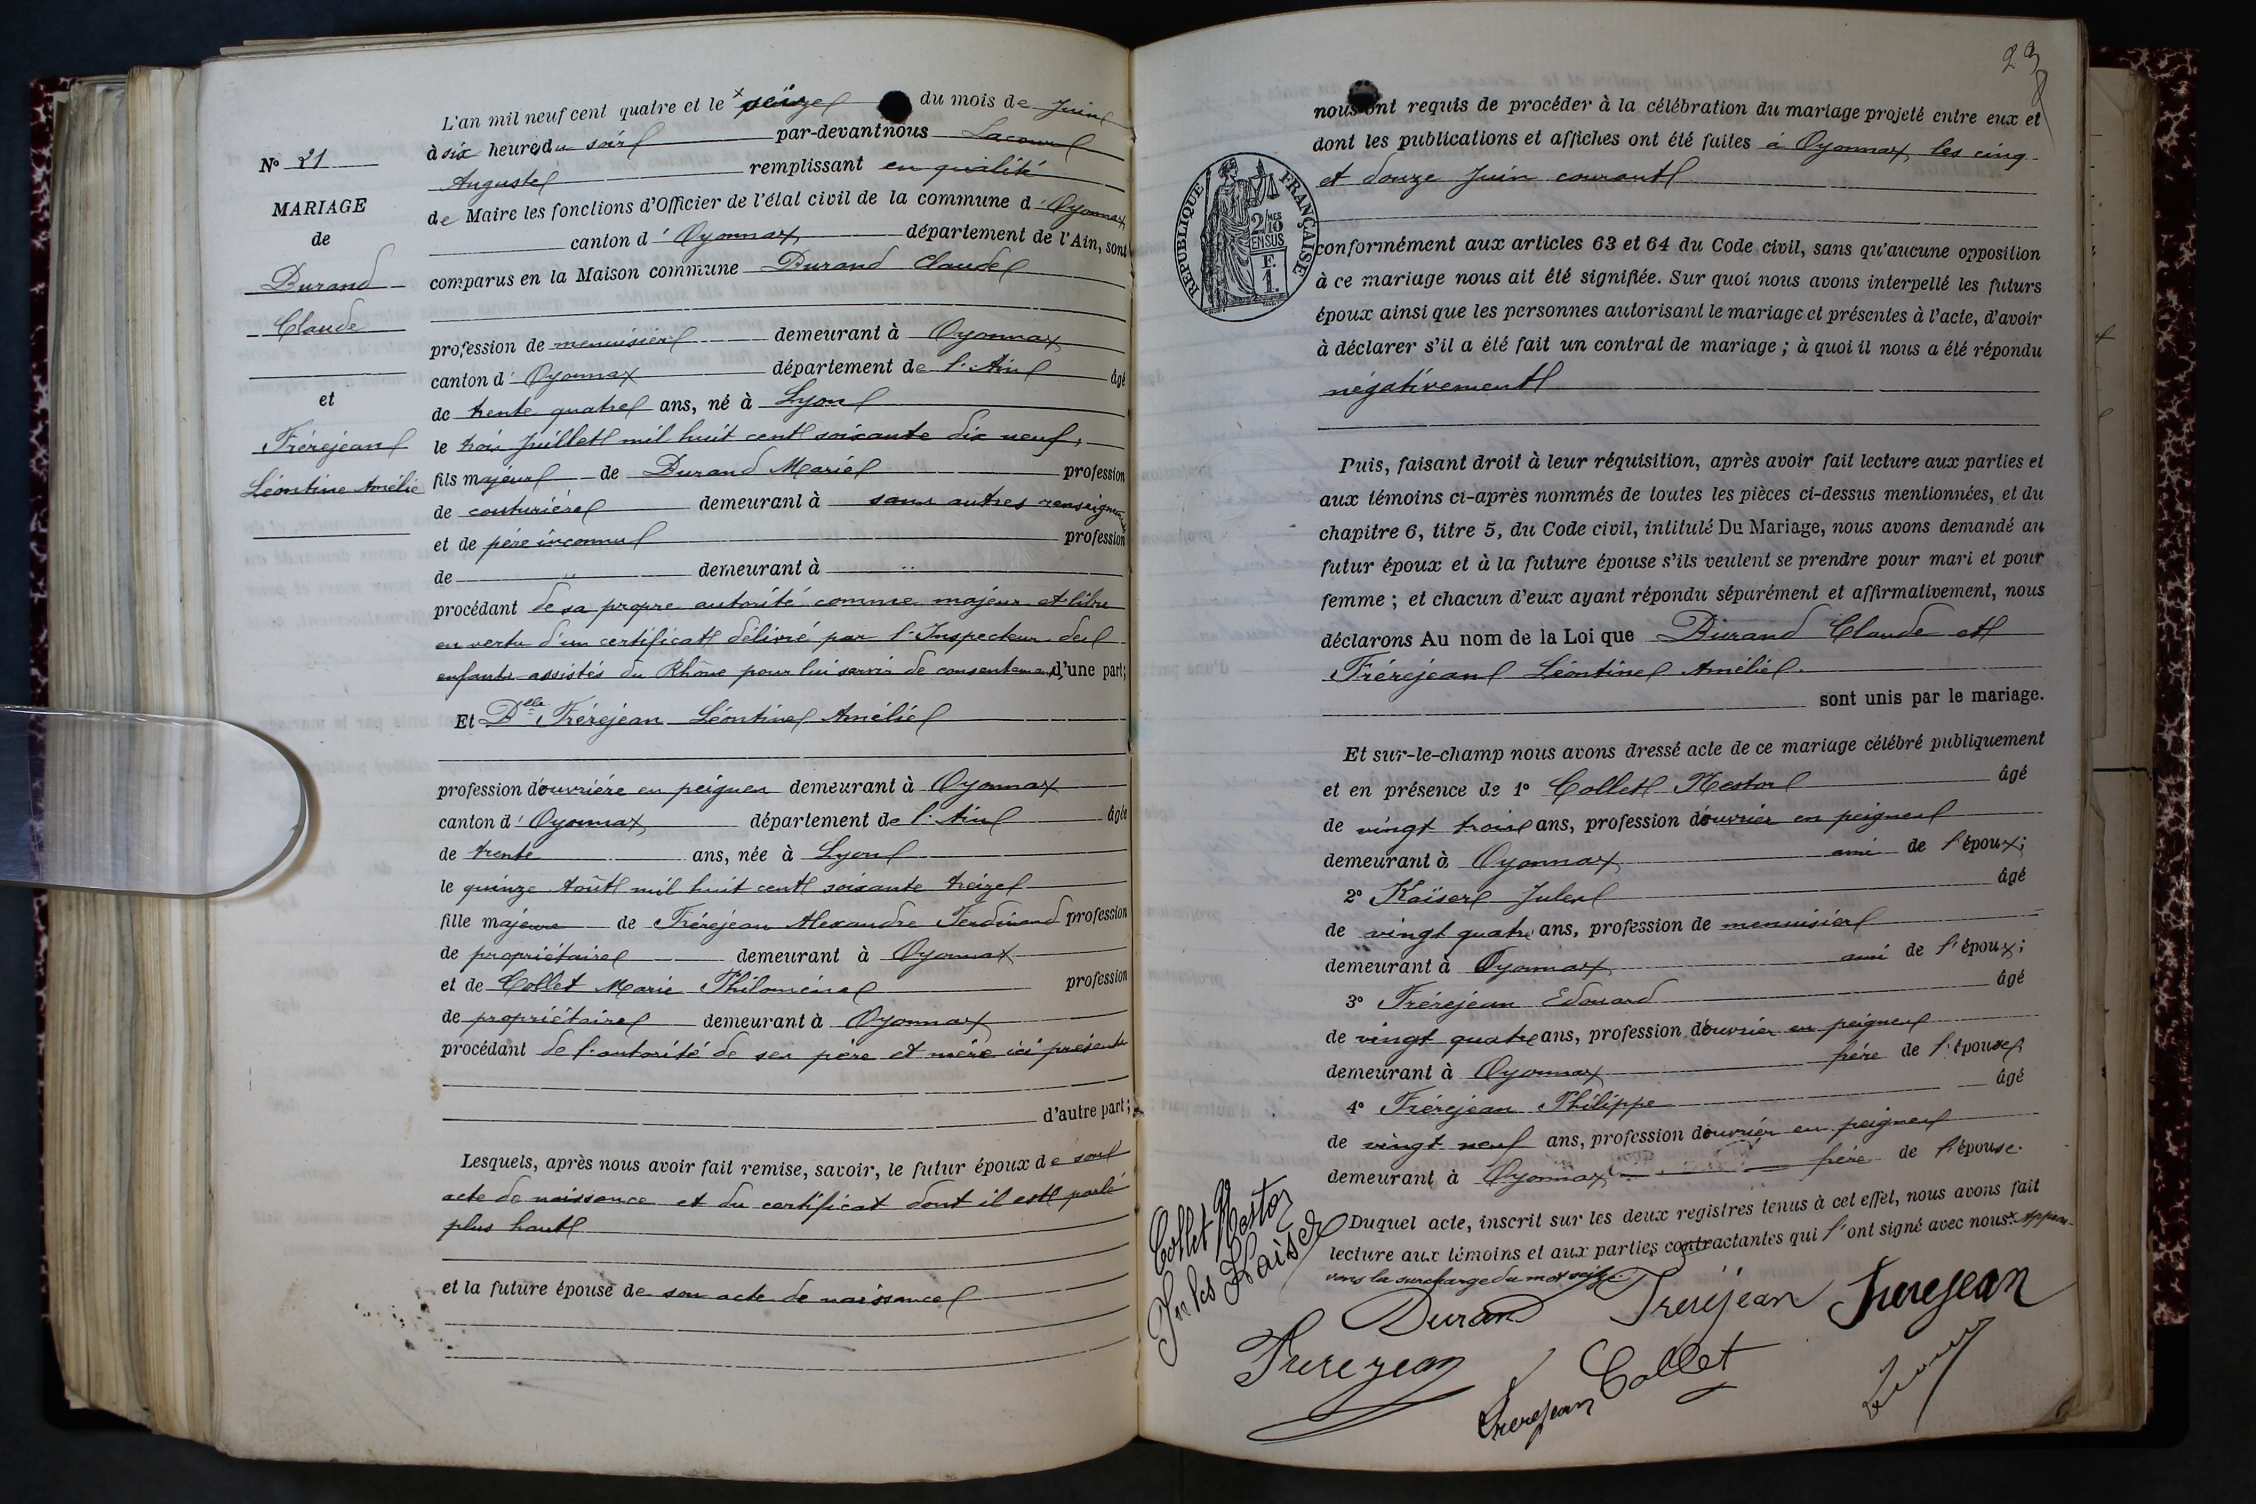 N° 21
MARIAGE
de
Durand
Claude
et
Frèrejean
Léontine Amélie
L'an mil neuf cent quatre et le × seize du mois de Juin
à six heures du soir par-devant nous Lacour
Auguste remplissant en qualité
de Maire les fonctions d'Officier de l'état civil de la commune d'Oyonnax
canton d'Oyonnax département de l'Ain, sont
comparus en la Maison commune Durand Claude
profession de menuisier demeurant à Oyonnax
canton d'Oyonnax département de l'Ain âgé
de trente quatre ans, né à Lyon
le trois Juillet mil huit cent soixante dix neuf,
fils majeur de Durand Marie profession
de couturière demeurant à sans autres renseignem
et de père inconnu profession
de " demeurant à "
procédant de sa propre autorité comme majeur et libre
en vertu d'un certificat délivré par l'Inspecteur des
enfants assistés du Rhône pour lui servir de consentement d'une part;
Et Delle Frèrejean Léontine Amélie
profession d'ouvrière en peignes demeurant à Oyonnax
canton d'Oyonnax département de l'Ain âgée
de trente ans, née à Lyon
le quinze Août mil huit cent soixante treize
fille majeure de Frèrejean Alexandre Ferdinand profession
de propriétaire demeurant à Oyonnax
et de Collet Marie Philomène profession
de propriétaire demeurant à Oyonnax
procédant de l'autorité de ses père et mère ici présents
d'autre part;
Lesquels, après nous avoir fait remise, savoir, le futur époux de son
acte de naissance et du certificat dont il est parlé
plus haut
et la future épouse de son acte de naissance
nous ont requis de procéder à la célébration du mariage projeté entre eux et
dont les publications et affiches ont été faites à Oyonnax, les cinq
et douze Juin courant
RÉPUBLIQUE FRANÇAISE
2/10MES
EN SUS
F.
1.
conformément aux articles 63 et 64 du Code civil, sans qu'aucune opposition
à ce mariage nous ait été signifiée. Sur quoi nous avons interpellé les futurs
époux ainsi que les personnes autorisant le mariage et présentes à l'acte, d'avoir
à déclarer s'il a été fait un contrat de mariage; à quoi il nous a été répondu
négativement
Puis, faisant droit à leur réquisition, après avoir fait lecture aux parties et
aux témoins ci-après nommés de toutes les pièces ci-dessus mentionnées, et du
chapitre 6, titre 5, du Code civil, intitulé Du Mariage, nous avons demandé au
futur époux et à la future épouse s'ils veulent se prendre pour mari et pour
femme; et chacun d'eux ayant répondu séparément et affirmativement, nous
déclarons Au nom de la Loi que Durand Claude et
Frèrejean Léontine Amélie.
sont unis par le mariage.
Et sur-le-champ nous avons dressé acte de ce mariage célébré publiquement
et en présence de 1° Collet Nestor âgé
de vingt trois ans, profession d'ouvrier en peignes
demeurant à Oyonnax ami de l'époux;
2° Kaiser Jules âgé
de vingt quatre ans, profession de menuisier
demeurant à Oyonnax ami de l'époux;
3° Frèrejean Edouard âgé
de vingt quatre ans, profession d'ouvrier en peignes
demeurant à Oyonnax frère de l'épouse;
4° Frèrejean Philippe âgé
de vingt neuf ans, profession d'ouvrier en peignes
demeurant à Oyonnax frère de l'épouse.
Duquel acte, inscrit sur les deux registres tenus à cet effet, nous avons fait
lecture aux témoins et aux parties contractantes qui l'ont signé avec nous. × Approu-
vons la surcharge du mot seize.
Collet Nestor
Jules Kaiser
Durand
Frerejean
Frerejean
Frerejean
Collet
Frerejean